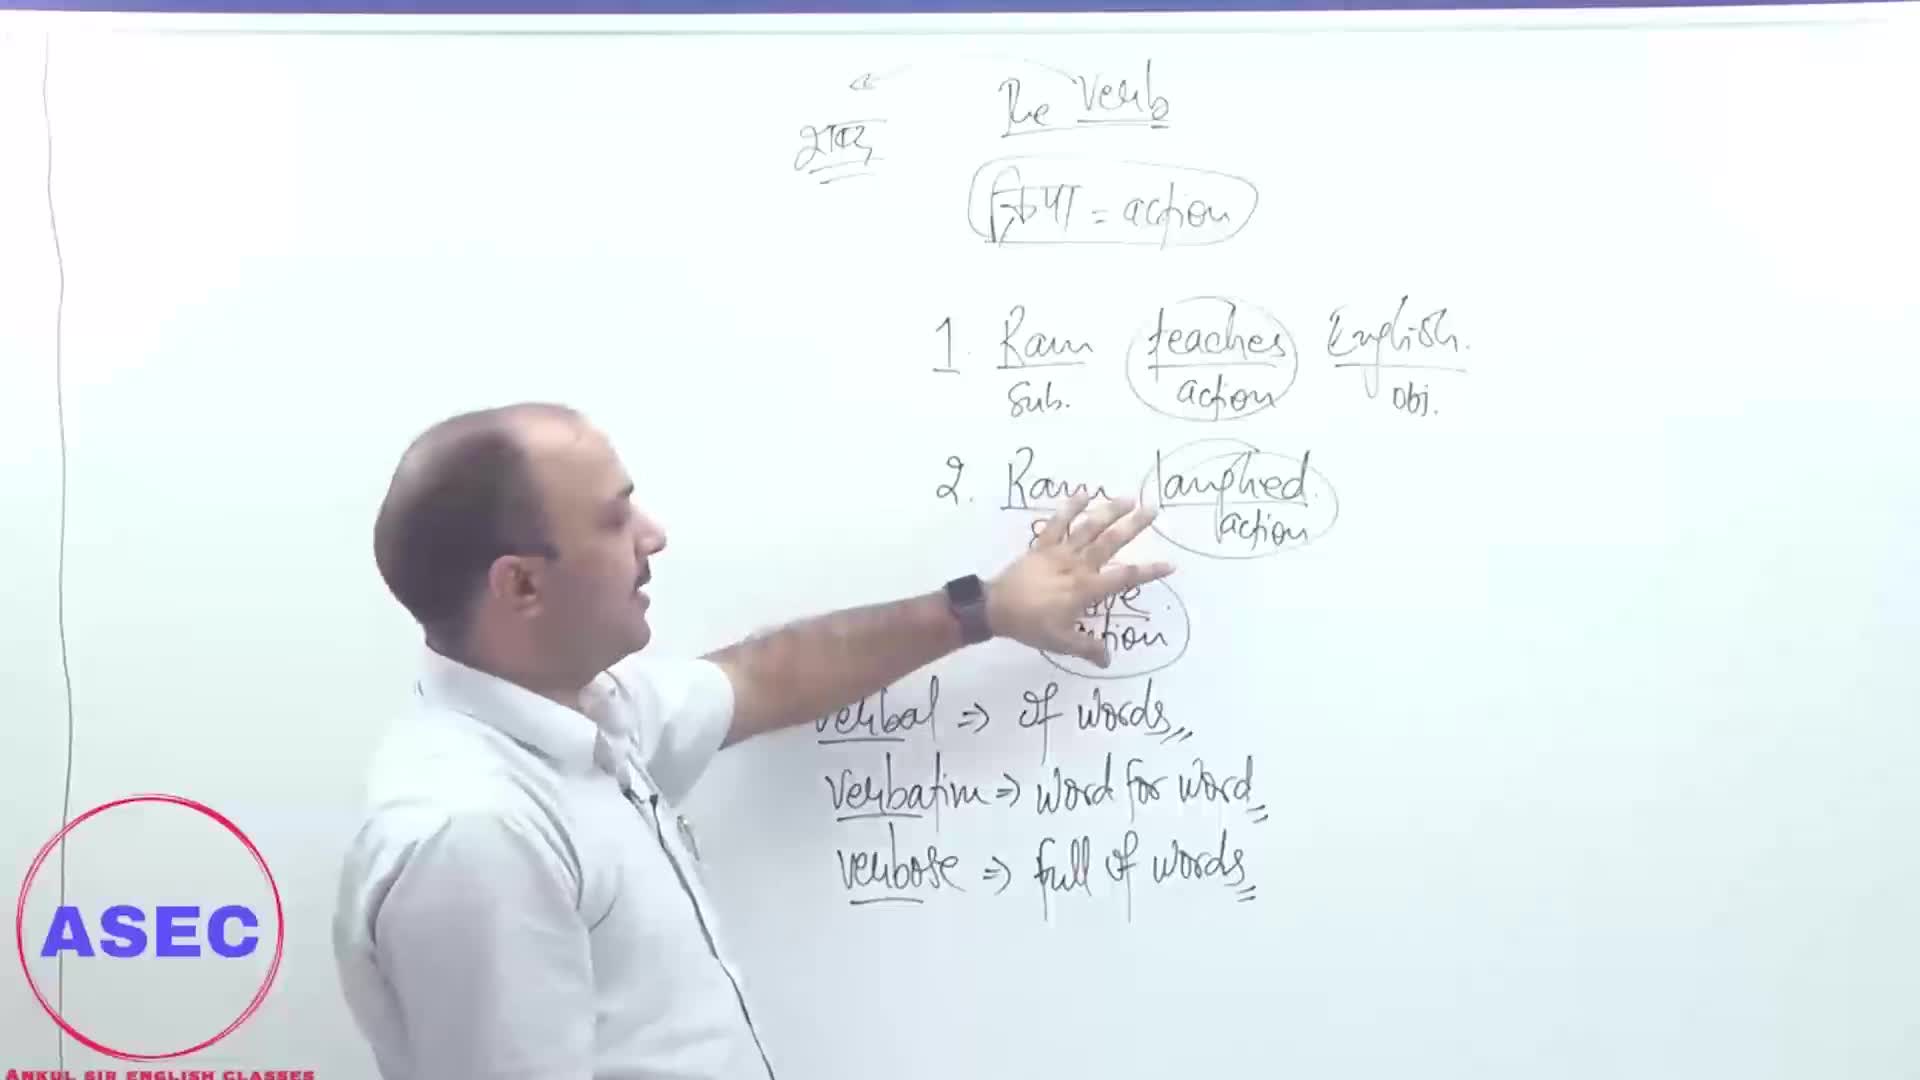 The Verb
शब्द
क्रिया = action
1. Ram teaches English.
Sub. action obj.
2. Ram laughed.
action
verbal => of words
verbatim => word for word
verbose => full of words
ASEC
ANKUL SIR ENGLISH CLASSES